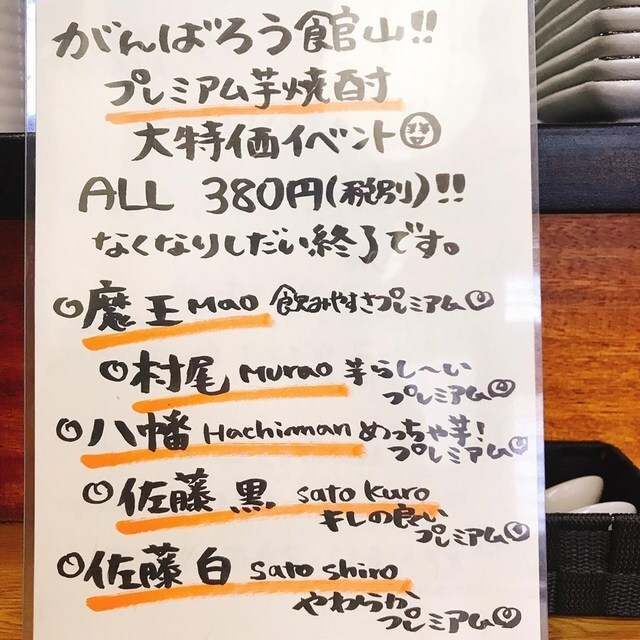 がんばろう館山!!
プレミアム芋焼酎
大特価イベント
ALL 380円(税別)!!
なくなりしだい終了です。
魔王 Mao 飲みやすさプレミアム
村尾 Murao 芋らし〜い
プレミアム
八幡 Hachimman めっちゃ芋!
プレミアム
佐藤 黒 Sato Kuro
キレの良い
プレミアム
佐藤 白 Sato shiro
やわらか
プレミアム